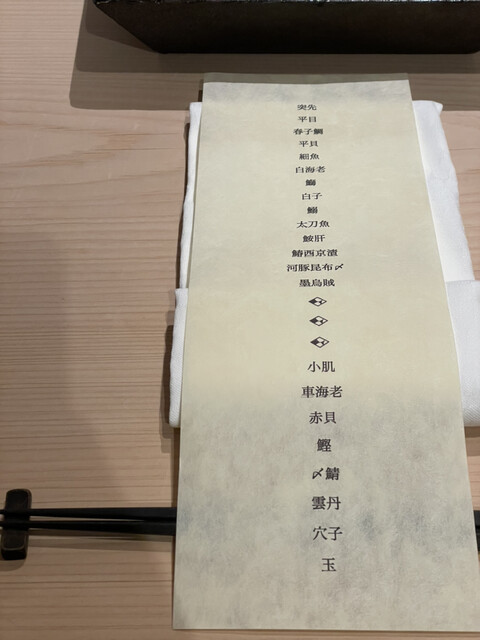 突先
平目
春子鯛
平貝
細魚
白海老
鰤
白子
鰯
太刀魚
鮟肝
鰆西京漬
河豚昆布〆
墨烏賊
小肌
車海老
赤貝
鰹
〆鯖
雲丹
穴子
玉